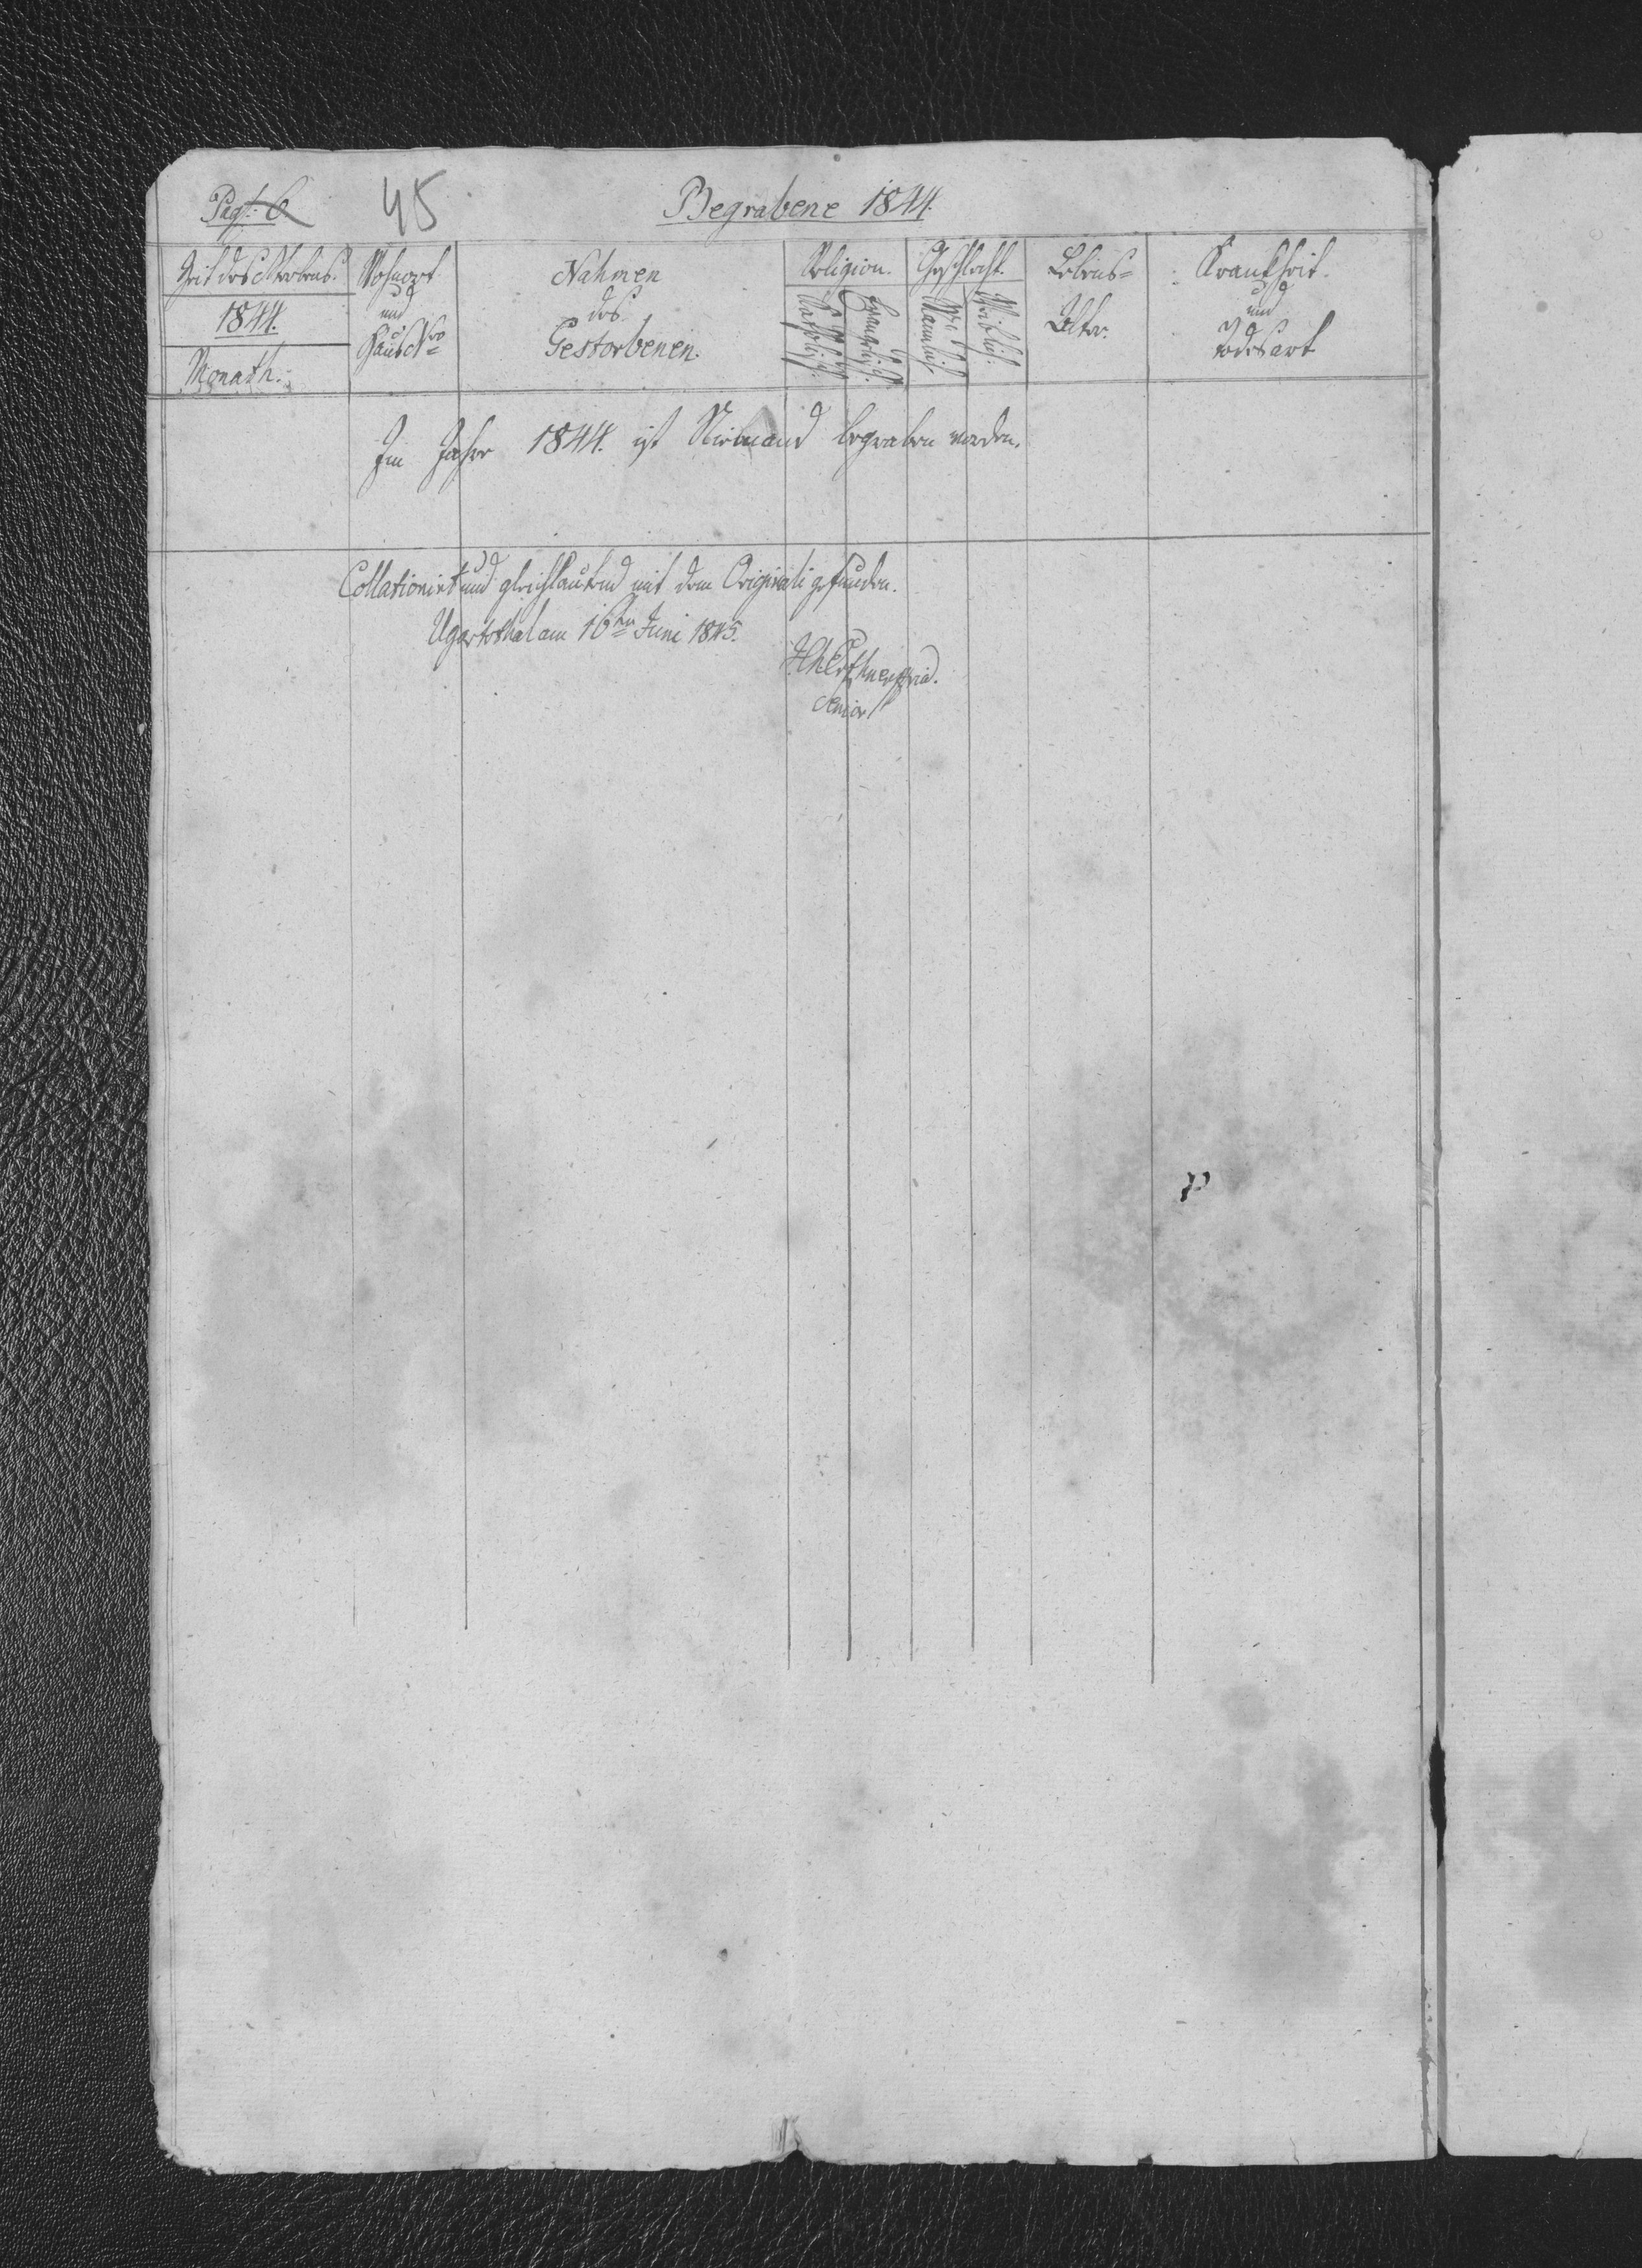 Pag: 6
45
Begrabene 1844.
Zeit des Sterbens.
1844.
Monath.
Wohnort
und
Haus Nro
Nahmen
des
Gestorbenen.
Religion.
Katholisch.
Evangelisch.
Geschlecht.
Männlich.
Weiblich.
Lebens-
Alter.
Krankheit.
und
Todesart
Im Jahre 1844. ist Niemand begraben worden.
Collationirt und gleichlautend mit dem Originali gefunden.
Ugartsthal am 16ten Juni 1845.
Senior